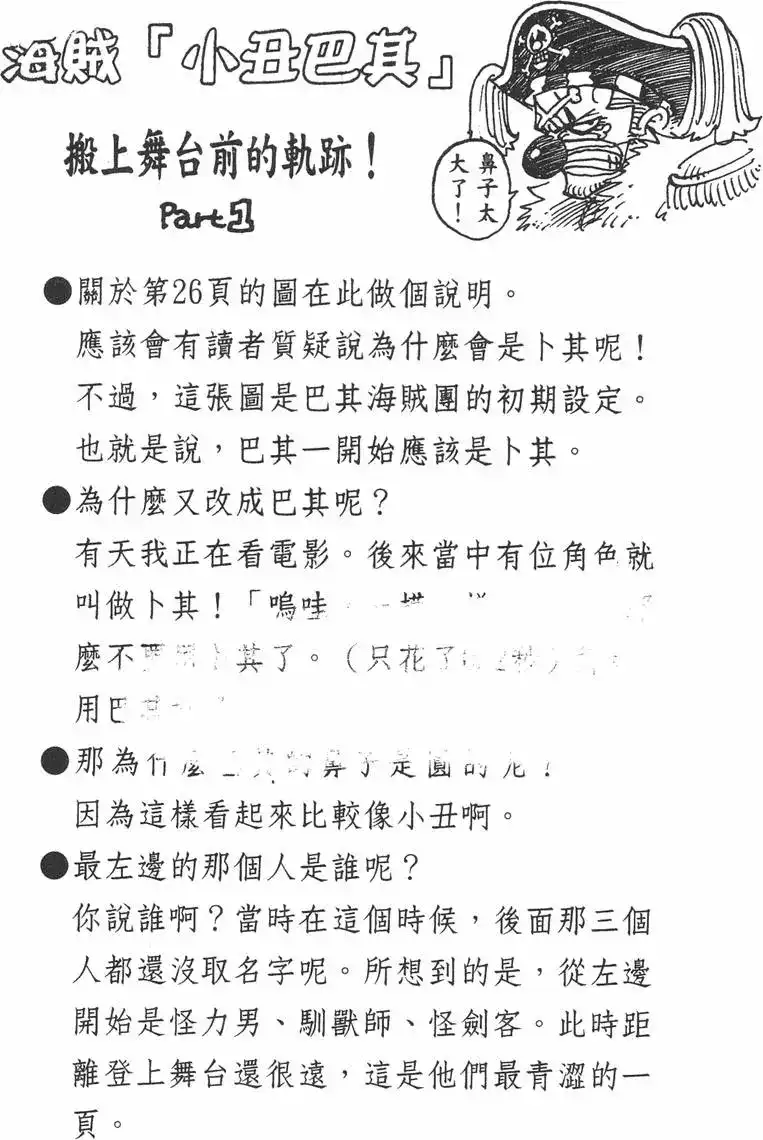 海賊「小丑巴其」
搬上舞台前的軌跡！
Part1
鼻子太
大了！
●關於第26頁的圖在此做個說明。
應該會有讀者質疑說為什麼會是卜其呢！
不過，這張圖是巴其海賊團的初期設定。
也就是說，巴其一開始應該是卜其。
●為什麼又改成巴其呢？
有天我正在看電影。後來當中有位角色就
叫做卜其！「嗚哇
麼不 其了。（只花了
用巴
●那為什麼 鼻子是圓的呢！
因為這樣看起來比較像小丑啊。
●最左邊的那個人是誰呢？
你說誰啊？當時在這個時候，後面那三個
人都還沒取名字呢。所想到的是，從左邊
開始是怪力男、馴獸師、怪劍客。此時距
離登上舞台還很遠，這是他們最青澀的一
頁。